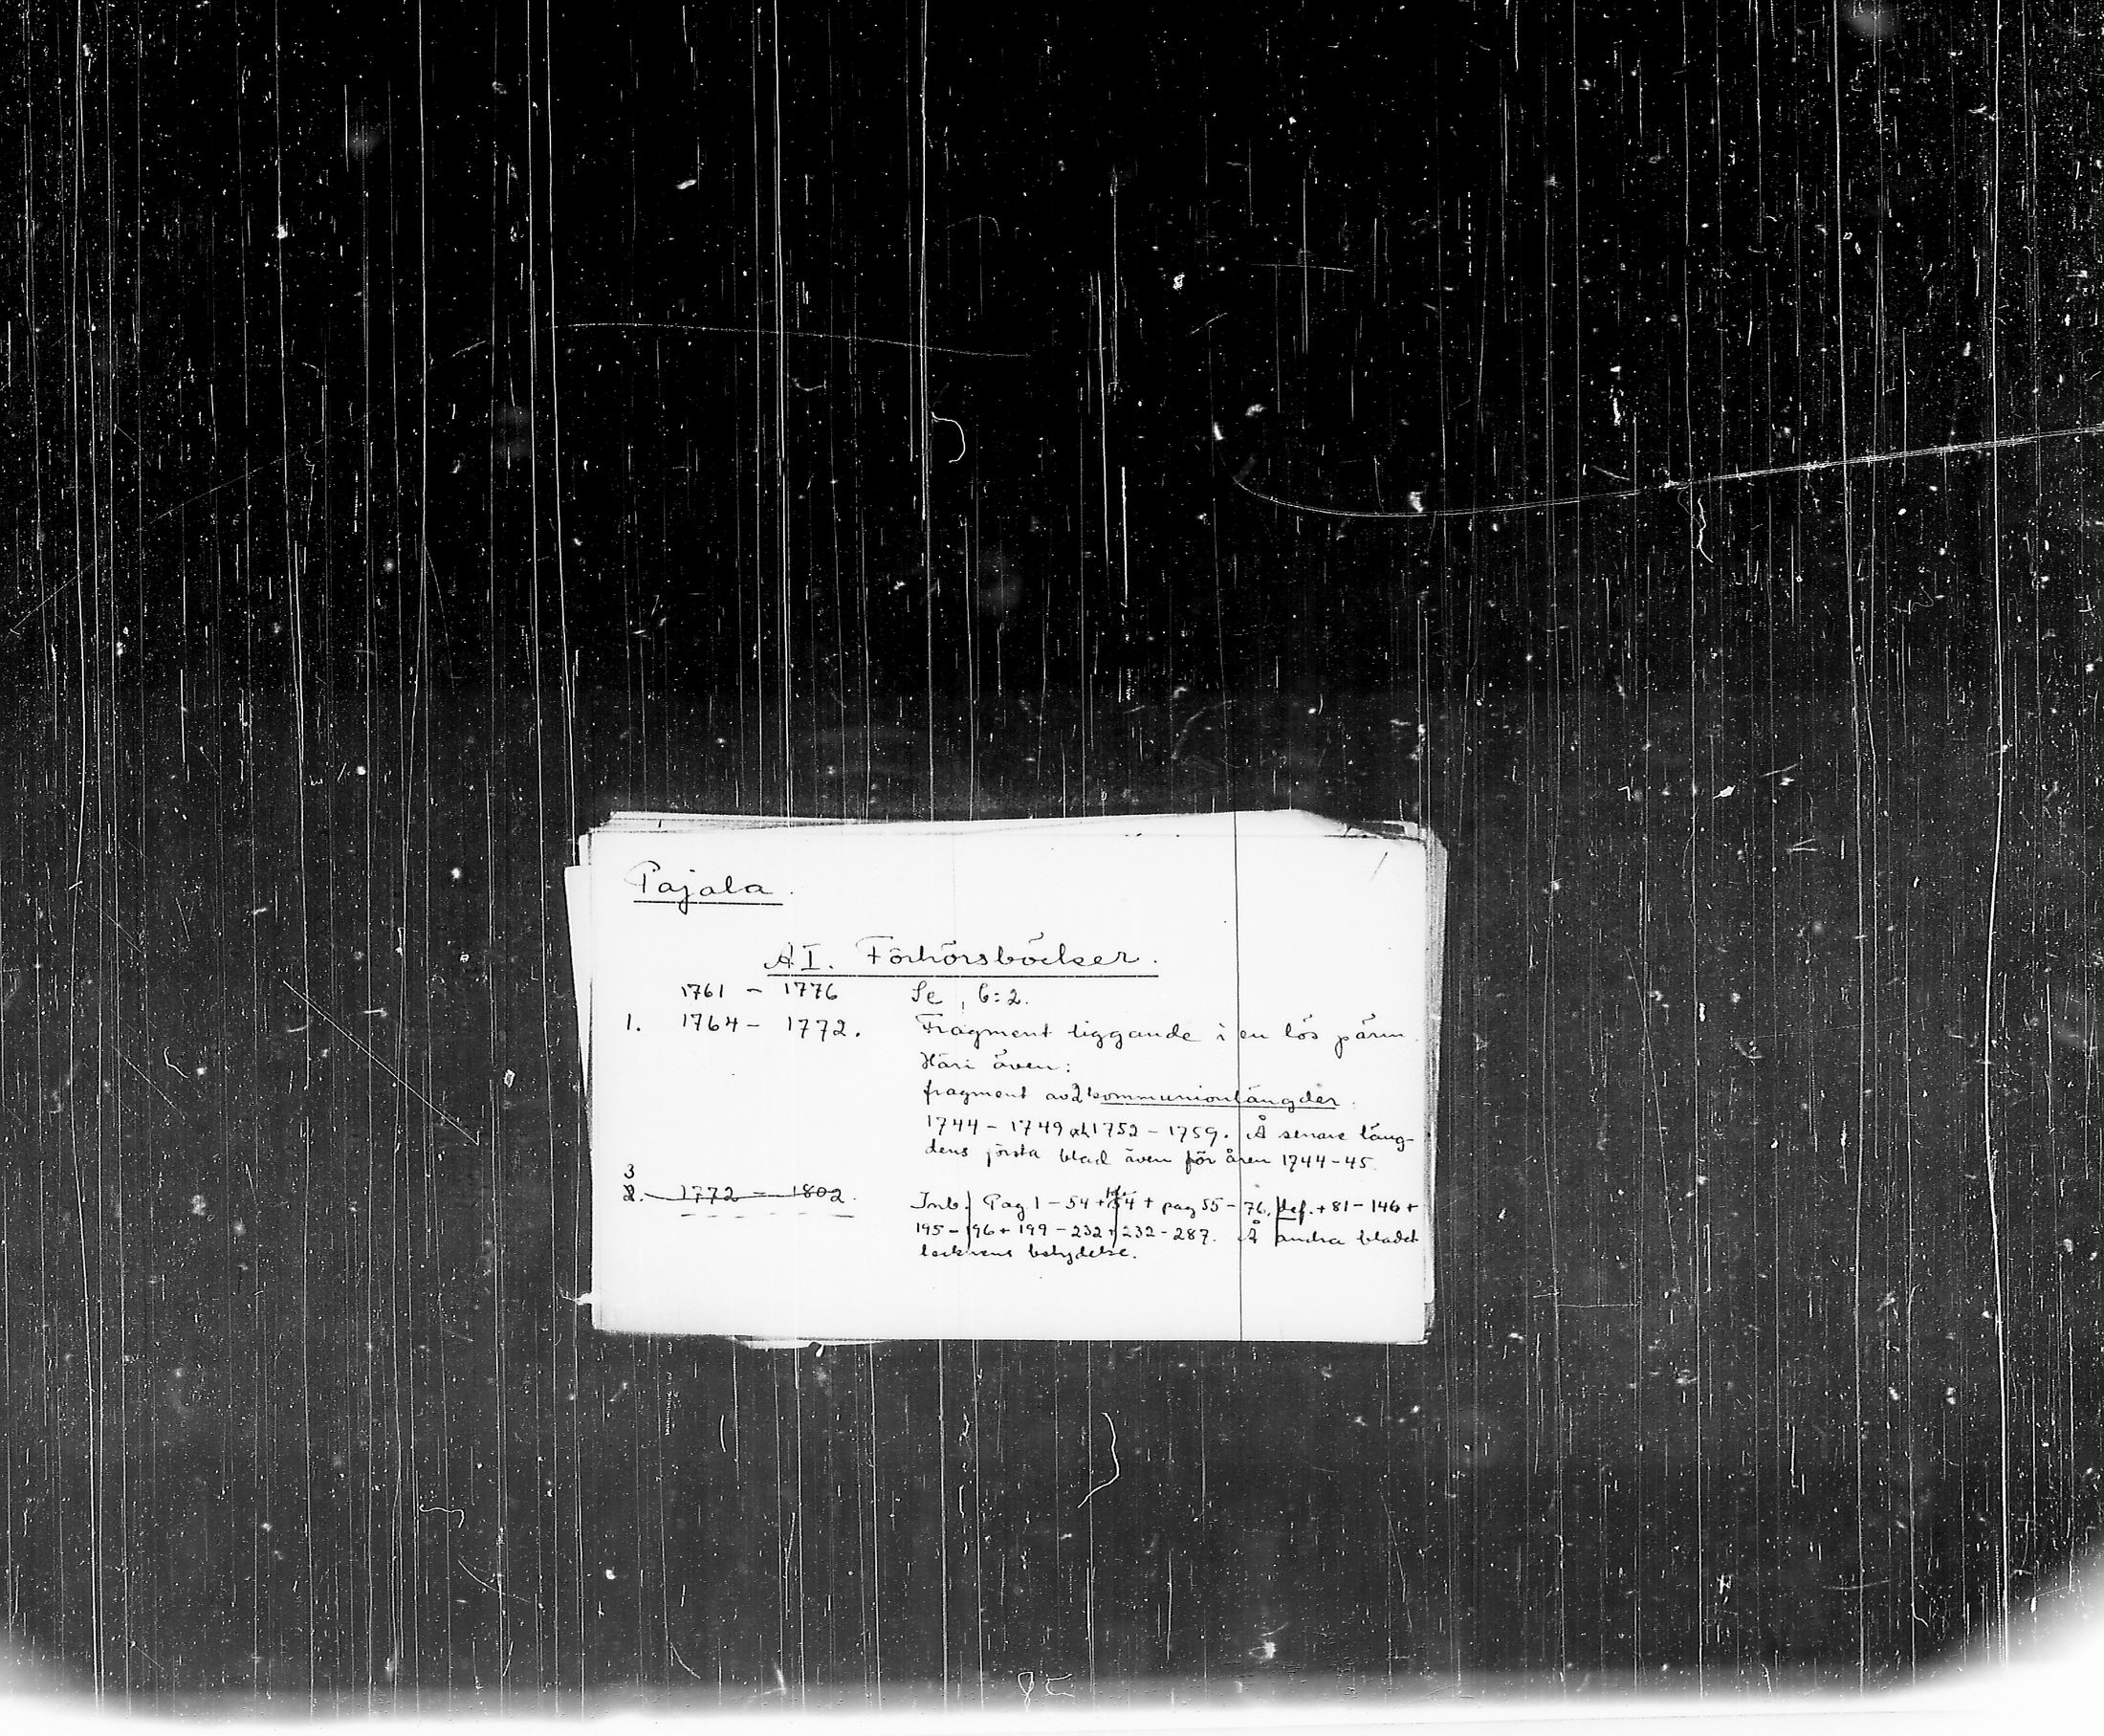 Pajala.
AI. Förhörsböcker.
1761 - 1776 Se , C:2.
1. 1764 - 1772. Fragment liggande i en lös pärm.
Häri även:
fragment av 2 kommunionlängder.
1744 - 1749 och 1752 - 1759. Å senare läng-
dens första blad även för åren 1744-45.
3
2. 1772 - 1802. Inb. Pag 1 - 54 + 54 + pag 55 - 76, def. + 81 - 146 +
195 - 196 + 199 - 232 + 232 - 287. Å andra bladet
tecknens betydelse.